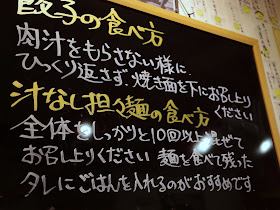 餃子の食べ方
肉汁をもらさない様に
ひっくり返さず、焼き面を下にお召し上り
ください
汁なし担々麺の食べ方
全体をしっかりと10回以上混ぜて
お召し上りください 麺を食べて残った
タレにごはんを入れるのがおすすめです。